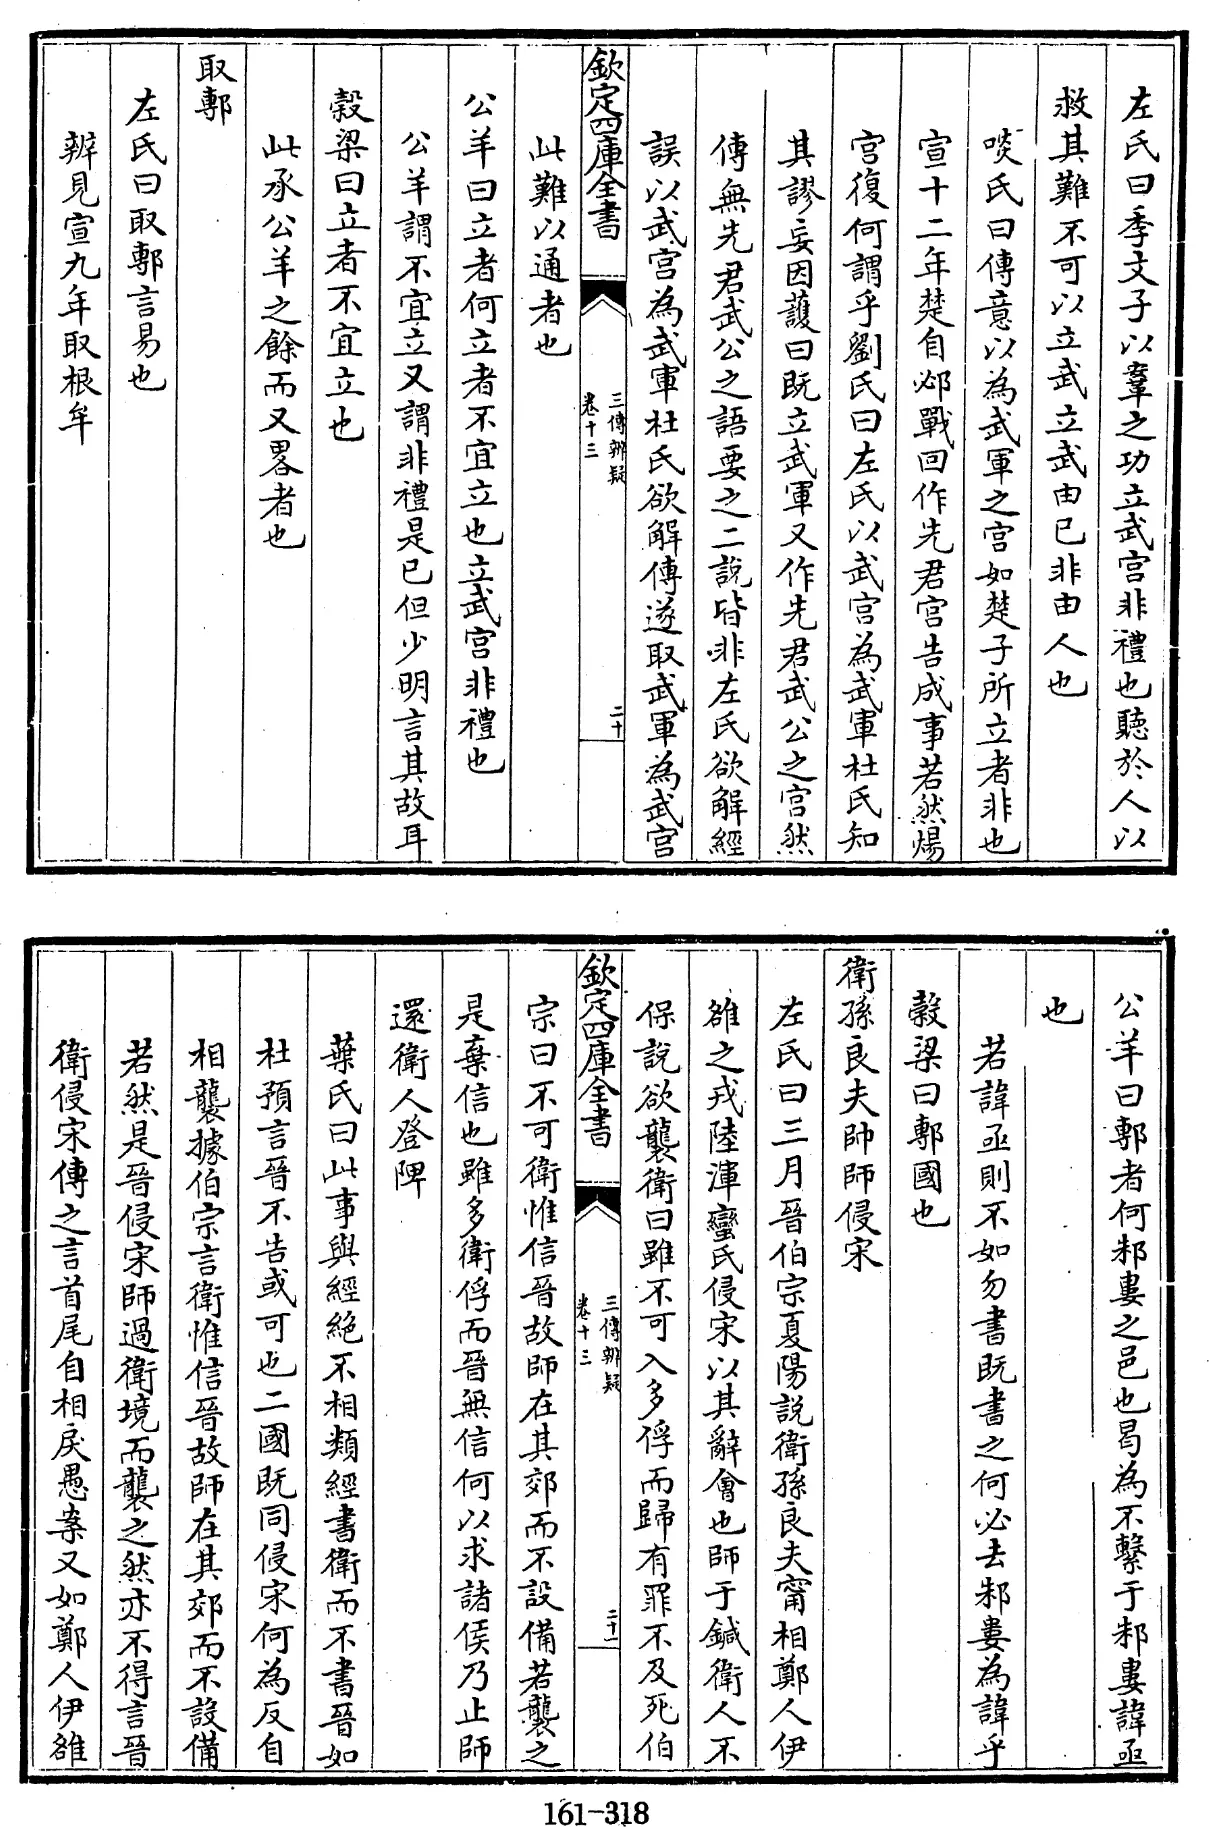 左氏曰季文子以鞌之功立武宫非禮也聽於人以
救其難不可以立武立武由已非由人也
啖氏曰傳意以為武軍之宫如楚子所立者非也
宣十二年楚自邲戰回作先君宫告成事若然煬
宫復何謂乎劉氏曰左氏以武宫為武軍杜氏知
其謬妄因䕶曰既立武軍又作先君武公之宫然
傳無先君武公之語要之二說皆非左氏欲解經
誤以武宫為武軍杜氏欲解傳遂取武軍為武宫
欽定四庫全書
三傳辨疑
卷十三
二十
此難以通者也
公羊曰立者何立者不宜立也立武宫非禮也
公羊謂不宜立又謂非禮是已但少明言其故耳
穀梁曰立者不宜立也
此承公羊之餘而又畧者也
取鄟
左氏曰取鄟言易也
辨見宣九年取根牟
公羊曰鄟者何邾婁之邑也曷為不繫于邾婁諱亟
也
若諱亟則不如勿書既書之何必去邾婁為諱乎
穀梁曰鄟國也
衛孫良夫帥師侵宋
左氏曰三月晉伯宗夏陽說衛孫良夫甯相鄭人伊
雒之戎陸渾蠻氏侵宋以其辭會也師于鍼衛人不
保說欲襲衛曰雖不可入多俘而歸有罪不及死伯
欽定四庫全書
三傳辨疑
卷十三
二十一
宗曰不可衛惟信晉故師在其郊而不設備若襲之
是棄信也雖多衛俘而晉無信何以求諸侯乃止師
還衛人登陴
葉氏曰此事與經絶不相類經書衛而不書晉如
杜預言晉不告或可也二國既同侵宋何為反自
相襲據伯宗言衛惟信晉故師在其郊而不設備
若然是晉侵宋師過衛境而襲之然亦不得言晉
衛侵宋傳之言首尾自相戾愚案又如鄭人伊雒
161-318